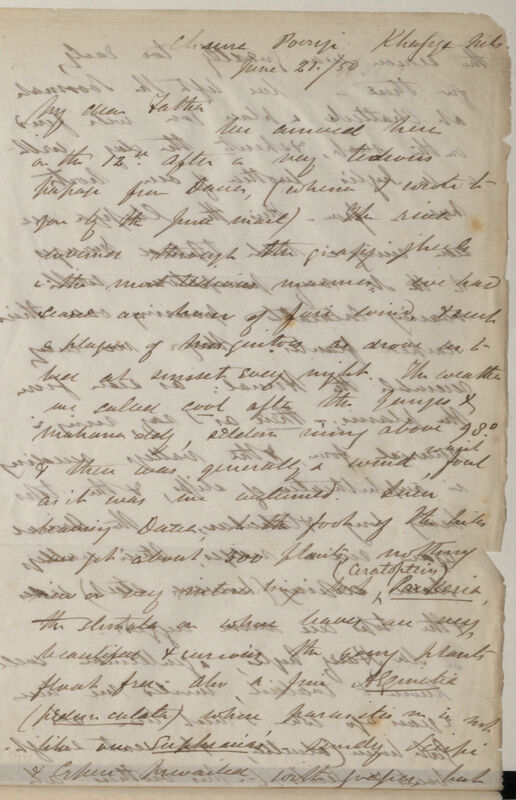 Churra Poonji Khasya Hills
June 21. /50
My dear Father
We arrived here
on the 12th after a very tedious
passage from Dacca, (whence I wrote to
you by the June mail) - The river
winds through the grassy jheels
in the most tedious manner, we had
scarce an hour of fair wind & such
a plague of musquitos as drove us to
bed at sunset every night. The weather
we called cool after the Ganges &
Mahanuddy, seldom rising above 98°
& there was generally a wind, foul
as it was we welcomed. Since
leaving Dacca, to the foot of the hills
we got about 300 plants, nothing
new or very interesting but (Ceratopteris) Parkeria,
the stomata on whose leaves are very
beautiful & curious the young plants
float free. also a fine Æginetia
(pedunculata) whose parasitism is not
like our Euphrasia's, sandy
& prevailed, with grasses, but